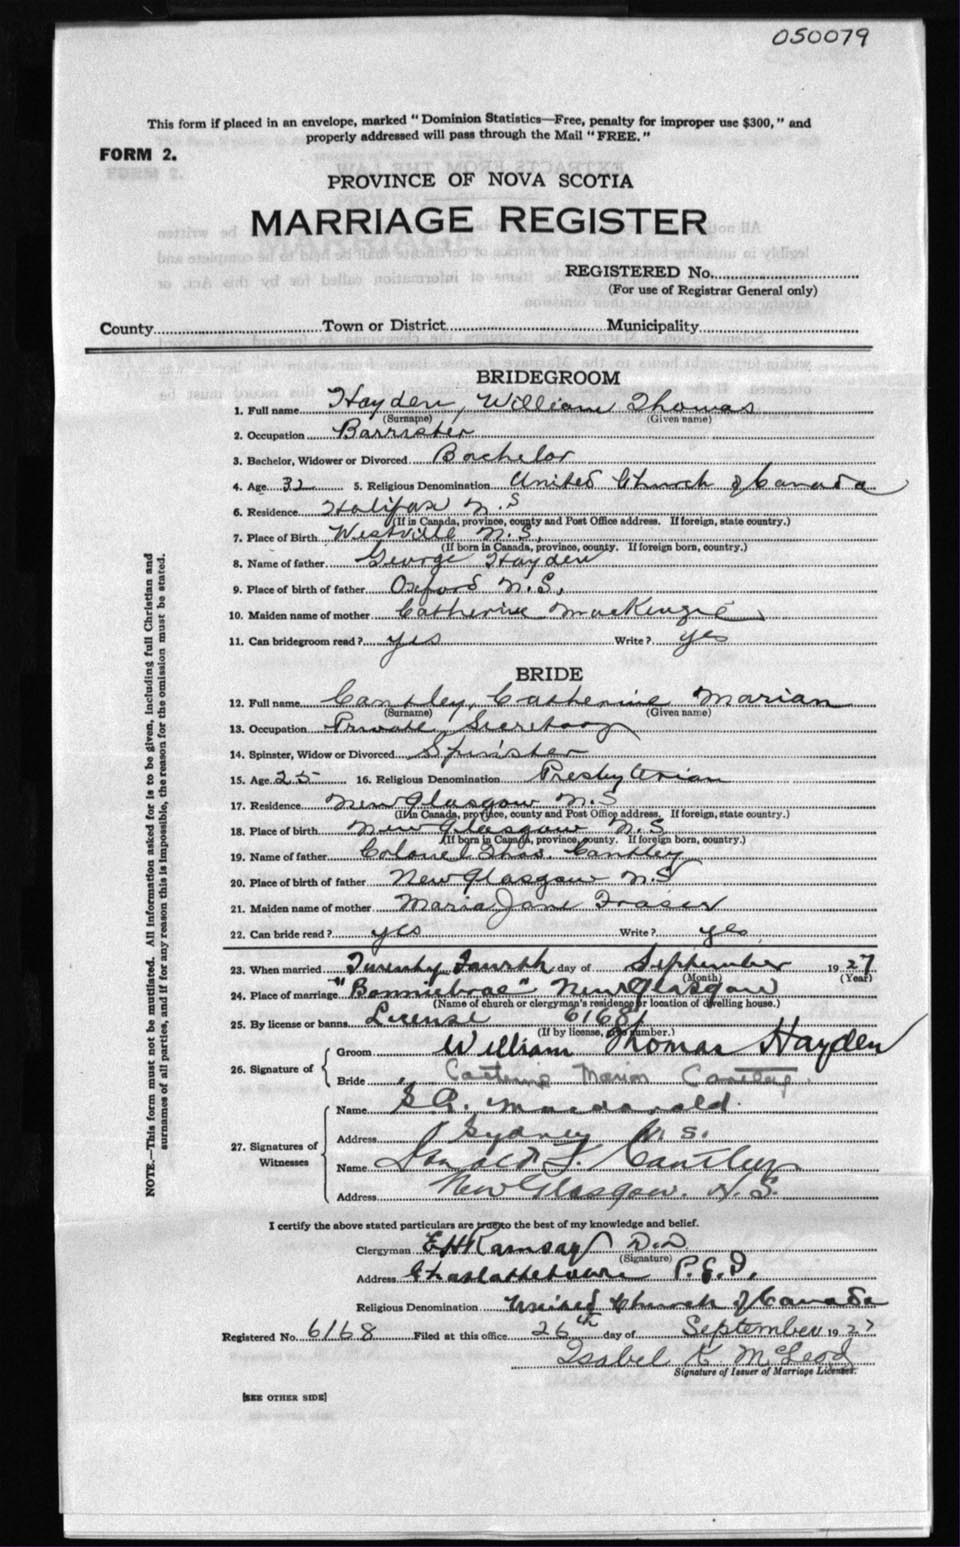 050079
This form if placed in an envelope, marked "Dominion Statistics—Free, penalty for improper use $300," and
properly addressed will pass through the Mail "FREE."
FORM 2.
PROVINCE OF NOVA SCOTIA
MARRIAGE REGISTER
REGISTERED No.
(For use of Registrar General only)
County Town or District Municipality
BRIDEGROOM
1. Full name Hayden, William Thomas
(Surname) (Given name)
2. Occupation Barrister
3. Bachelor, Widower or Divorced Bachelor
4. Age 32 5. Religious Denomination United Church of Canada
6. Residence Halifax N.S
(If in Canada, province, county and Post Office address. If foreign, state country.)
7. Place of Birth Westville N.S.
(If born in Canada, province, county. If foreign born, country.)
8. Name of father George Hayden
9. Place of birth of father Oxford N.S.
10. Maiden name of mother Catherine MacKenzie
11. Can bridegroom read? yes Write? yes
BRIDE
12. Full name Cantley, Catherine Marian
(Surname) (Given name)
13. Occupation Private Secretary
14. Spinster, Widow or Divorced Spinster
15. Age 25 16. Religious Denomination Presbyterian
17. Residence New Glasgow N.S
(If in Canada, province, county and Post Office address. If foreign, state country.)
18. Place of birth New Glasgow N.S
(If born in Canada, province, county. If foreign born, country.)
19. Name of father Colonel Thos. Cantley
20. Place of birth of father New Glasgow N.S
21. Maiden name of mother Maria Jane Fraser
22. Can bride read? yes Write? yes
23. When married Twenty Fourth day of September 1927
(Month) (Year)
24. Place of marriage "Bonniebrae" New Glasgow
(Name of church or clergyman's residence or location of dwelling house.)
25. By license or banns License 6168
(If by license, give number.)
26. Signature of
Groom William Thomas Hayden
Bride Catherine Marion Cantley
27. Signatures of Witnesses
Name S A. Macdonald.
Address Sydney N.S.
Name Donald F. Cantley
Address New Glasgow. N.S.
I certify the above stated particulars are true to the best of my knowledge and belief.
Clergyman E H Ramsay D.D.
(Signature)
Address Charlottetown P.E.I.
Religious Denomination United Church of Canada
Registered No. 6168 Filed at this office 26th day of September 1927
Isabel K McLeod
Signature of Issuer of Marriage Licenses.
[SEE OTHER SIDE]
NOTE.—This form must not be mutilated. All information asked for is to be given, including full Christian and
surnames of all parties, and if for any reason this is impossible, the reason for the omission must be stated.